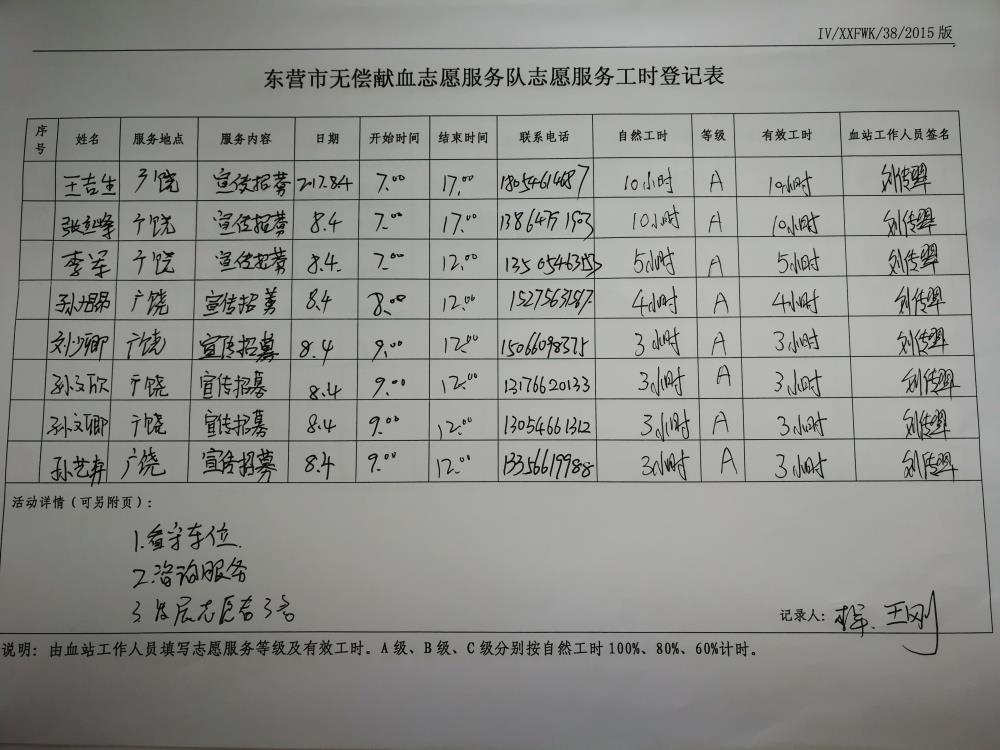 IV/XXFWK/38/2015版
东营市无偿献血志愿服务队志愿服务工时登记表
序号 姓名 服务地点 服务内容 日期 开始时间 结束时间 联系电话 自然工时 等级 有效工时 血站工作人员签名
王吉生 广饶 宣传招募 2017.8.4 7.00 17.00 18054614687 10小时 A 10小时
广饶 宣传招募 8.4 7.00 17.00 10小时 A 10小时
李军 广饶 宣传招募 8.4 7.00 12.00 5小时 A 5小时
广饶 宣传招募 8.4 8.00 12.00 15275631587 4小时 A 4小时
刘少卿 广饶 宣传招募 8.4 9.00 12.00 15066098375 3小时 A 3小时
孙文欣 广饶 宣传招募 8.4 9.00 12.00 13176620133 3小时 A 3小时
孙文卿 广饶 宣传招募 8.4 9.00 12.00 13054661312 3小时 A 3小时
孙艺卉 广饶 宣传招募 8.4 9.00 12.00 13356619988 3小时 A 3小时
活动详情（可另附页）：
1.看守车位
2.咨询服务
3.发展志愿者3名
记录人： 王刚
说明：由血站工作人员填写志愿服务等级及有效工时。A级、B级、C级分别按自然工时100%、80%、60%计时。